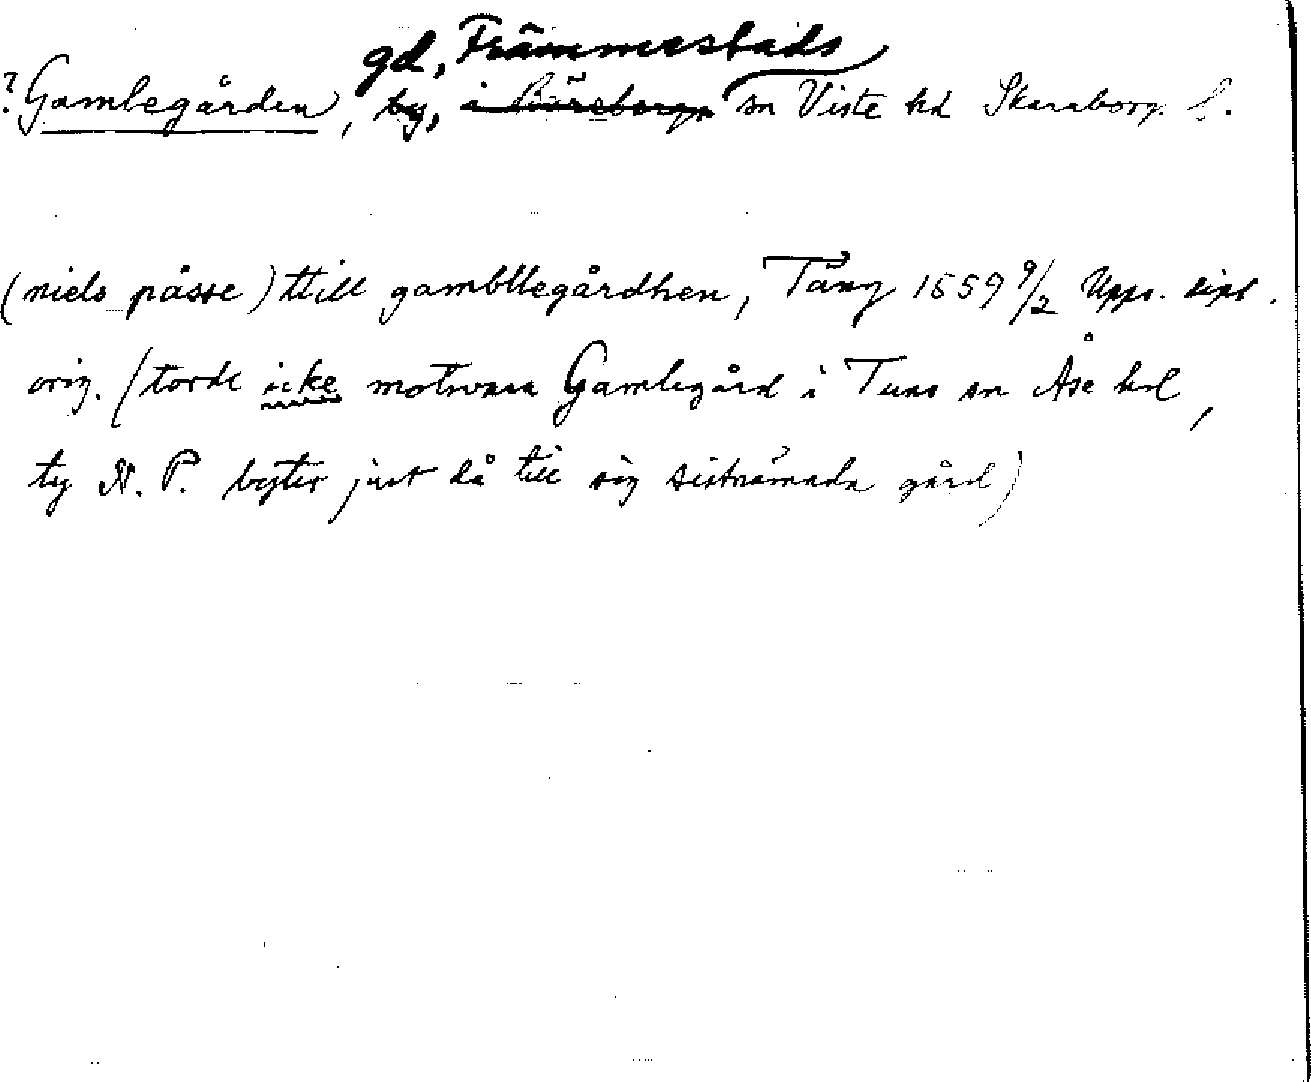 gd, Främmestads
? Gamlegården, by, i Bäreberga sn Viste hd Skaraborg. l.
(niels påsse) ttill gambllegårdhen, Tång 1559 9/2 Upps. dipl.
orig. (torde icke motsvara Gamlegård i Tuns sn Åse hd,
ty N. P. byter just då till sig sistnämnda gård)